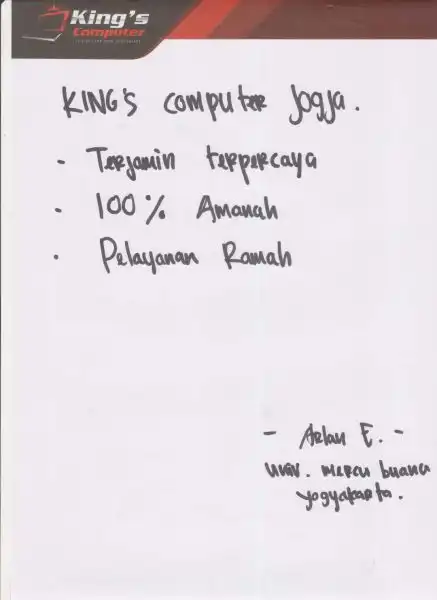 King's
Computer
KING'S computer Jogja.
- Terjamin terpercaya
- 100% Amanah
- Pelayanan Ramah
- Arlan E. -
Univ. Mercu buana
yogyakarta.